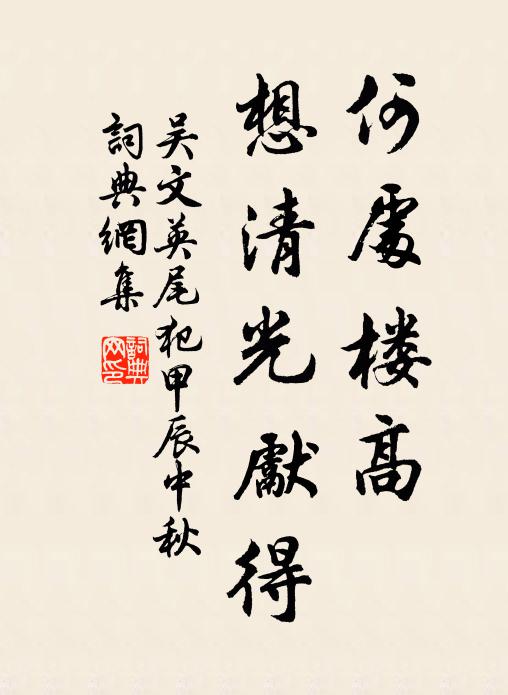 何處楼高
想清光獻得
吴文英尾犯甲辰中秋
詞典網集
詞典
网印